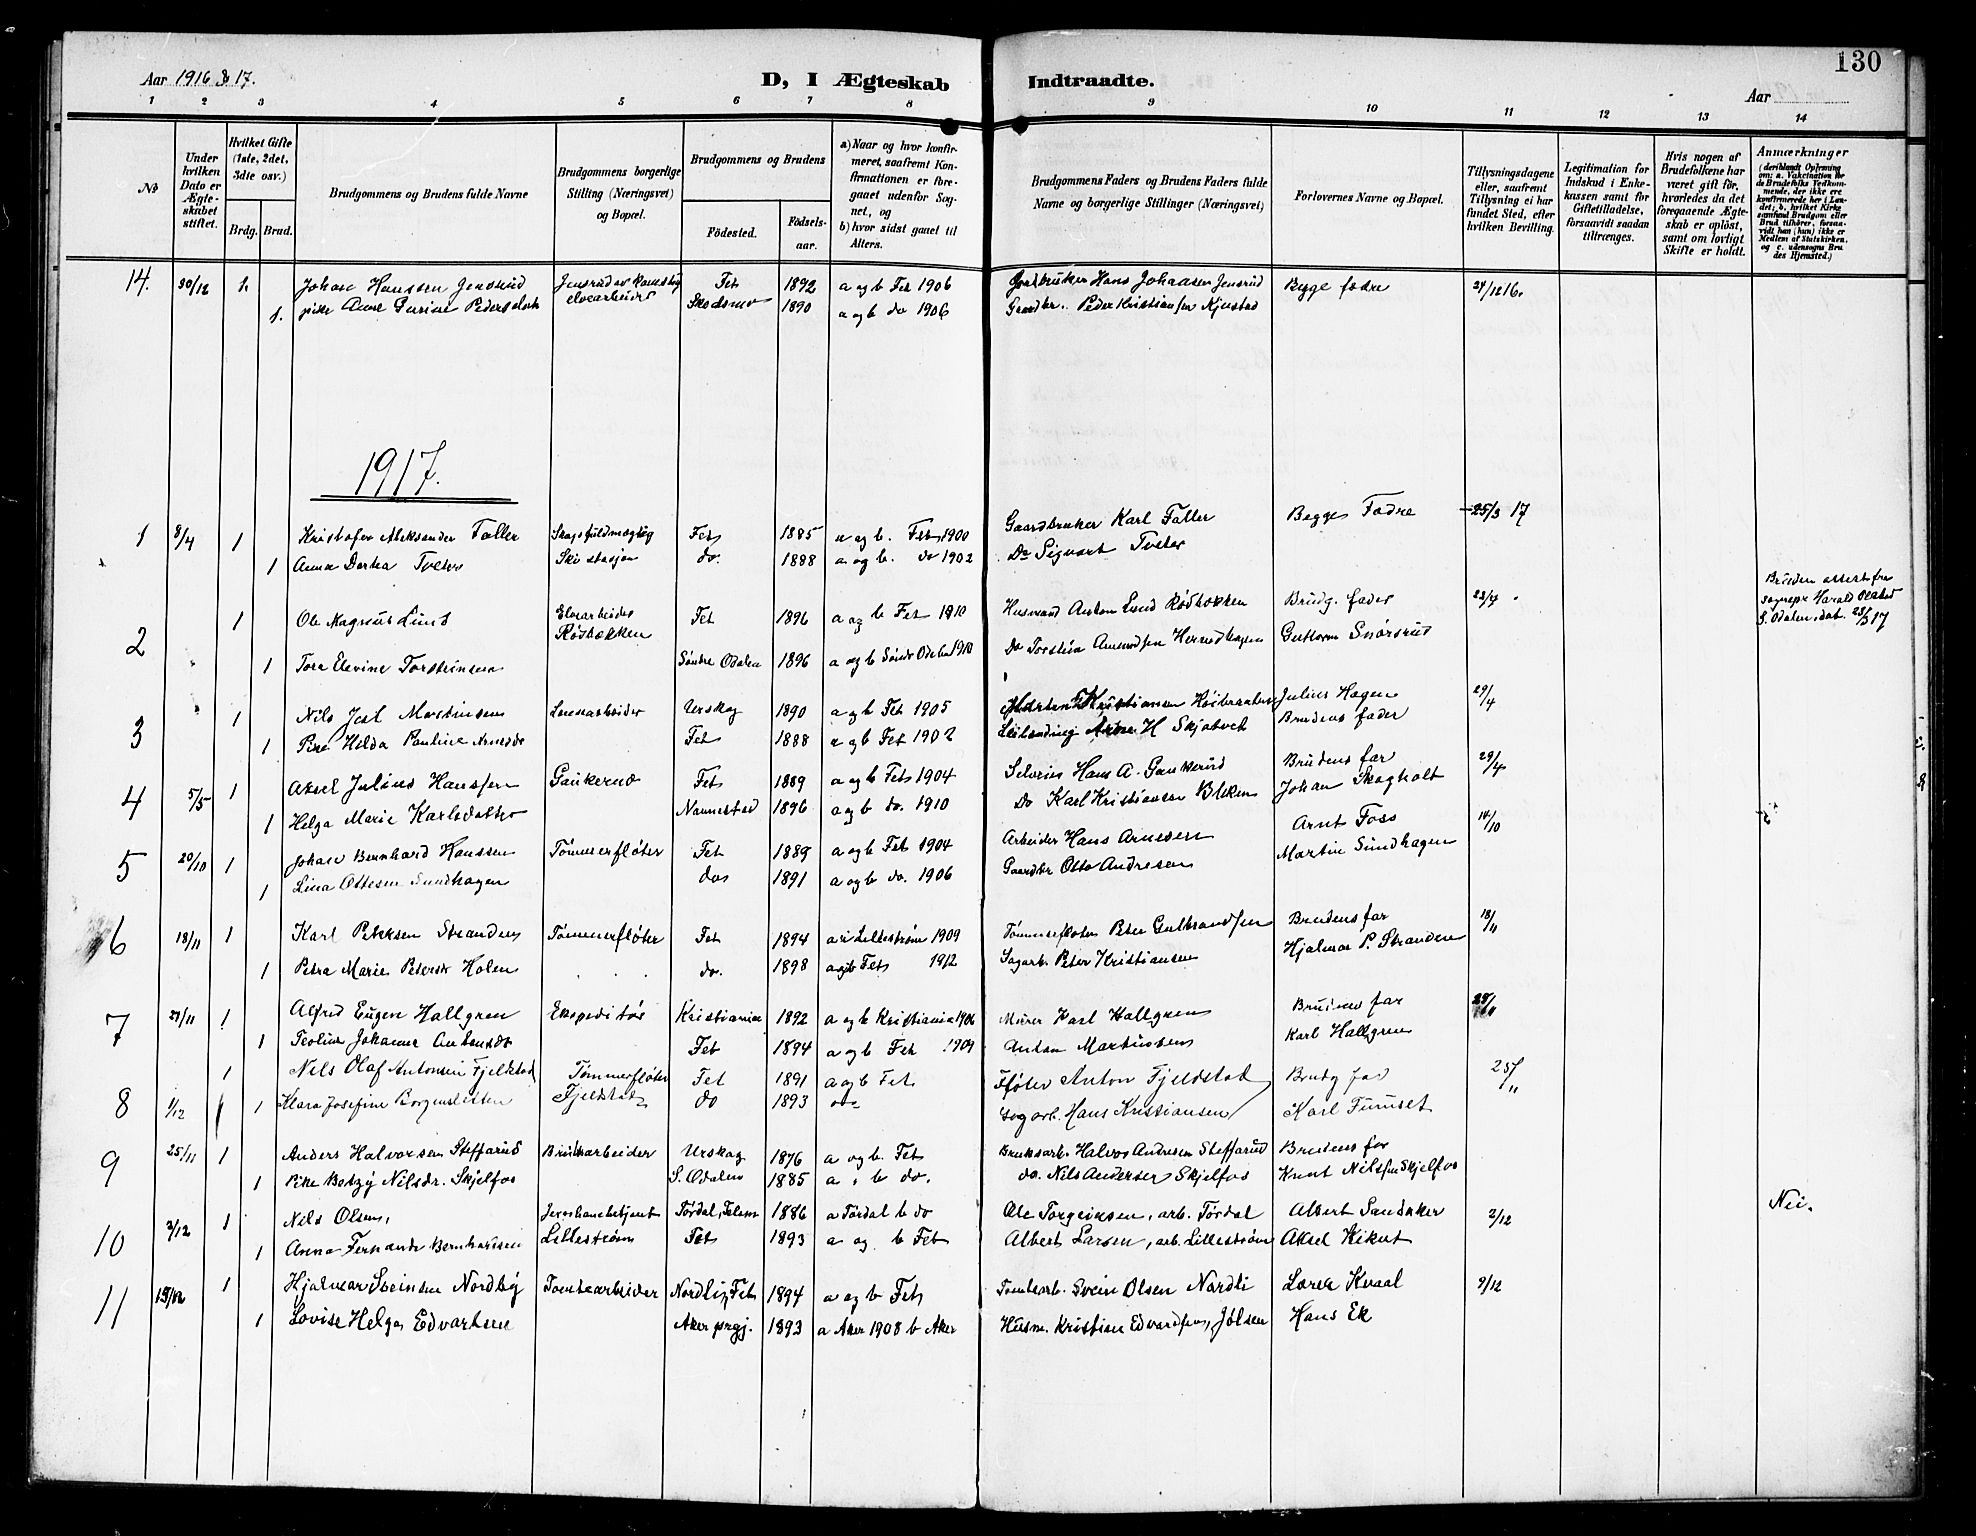 130
Aar 1916 & 17.
D, I Ægteskab Indtraadte.
Aar
1 2 3 4 5 6 7 8 9 10 11 12 13 14
No
Under hvilken Dato er Ægteskabet stiftet.
Hvilket Gifte (1ste, 2det, 3die osv.)
Brdg. Brud.
Brudgommens og Brudens fulde Navne
Brudgommens borgerlige Stilling (Næringsvei) og Bopæl.
Brudgommens og Brudens
Födested. Födselsaar.
a) Naar og hvor konfirmeret, saafremt Konfirmationen er foregaaet udenfor Sognet, og
b) hvor sidst gaaet til Alters.
Brudgommens Faders og Brudens Faders fulde Navne og borgerlige Stillinger (Næringsvei)
Forlovernes Navne og Bopæl.
Tillysningsdagene eller, saafremt Tillysning ei har fundet Sted, efter hvilken Bevilling.
Legitimation for Indskud i Enkekassen samt for Giftetilladelse, forsaavidt saadan tiltrænges.
Hvis nogen af Brudefolkene har været gift før, hvorledes da det foregaaende Ægteskab er opløst, samt om lovligt Skifte er holdt.
Anmærkninger (deriblandt Oplysning om: a. Vakcination for de Brudefolks Vedkommende, der ikke ere konfirmerede her i Landet; b. hvilket Kirkesamfund Brudgom eller Brud tilhører, forsaavidt han (hun) ikke er Medlem af Statskirken, og c. udensogns Brudes Hjemsted.)
14. 30/12 Johan Hanssen Jensrud Fet 1892 a og b Fet 1906 Hans Johansen Jensrud Begge fædre 24/12 16.
1. pike Anne Gurine Pedersdatr Skedsmo 1890 a og b do 1906 Peder Kristiansen
1917.
1 8/4 1 Kristofer Aleksander Faller Fet 1885 a og b. Fet 1900 Gaardbruker Karl Faller Begges Fædre 25/3 17
1 Anna Dortea Tveter Ski stasjon do. 1888 a. og b. do 1902 Do Sigvart Tveter
2 1 Ole Magnus Lund Elvearbeider Fet 1896 a og b Fet 1910 Husmand Anton Lund Rødbakken Brudg. fader 23/4
Rødbækken Guttorm Snørsrud
1 Tora Elevine Torsteinsen Søndre Odalen 1896 a og b Søndr Odalen 1910 Do Torstein Amundsen
Bruden attest fra sognepr Harald S. Odalen, dat. 25/3 17
3 1 Nils Joel Martinsen Lensearbeider Urskog 1890 a og b Fet 1905 Kristiansen Julius Hagen 29/4
1 Pike Hilda Pauline Arnesdr Fet 1888 a og b Fet 1902 Arne H Skjatvet Brudens fader
4 5/5 1 Aksel Julius Hanssen Gaukerud Fet 1889 a og b Fet 1904 Selveier Hans A. Gaukerud Brudens far 29/4
1 Helga Marie Karlsdatter Nannestad 1896 a og b do. 1910 Do Karl Kristiansen Bleken Johan Skogholt
5 20/10 1 Johan Bernhard Hanssen Tømmerfløter Fet 1889 a og b Fet 1904 Arbeider Hans Arnesen Arnt Foss 14/10
1 Lina Ottesen Sundhagen do 1891 a og b do. 1906 Gaardbr Otto Andresen Martin Sundhagen
6 18/11 1 Karl Petersen Stranden Tømmerfløter Fet 1894 a i Lillestrøm 1909 Tømmerfløter Peter Gulbrandsen Brudens far 18/11
1 Petra Marie Petersdr Holen do. 1898 a og b Fet 1912 Sagarb. Peter Kristiansen Hjalmar P. Stranden
7 21/11 1 Alfred Eugen Hallgren Ekspeditør Kristiania 1892 a og b Kristiania 1906 Murer Karl Hallgren Brudens far
1 Teoline Johanne Antonsdr Fet 1894 a og b Fet 1909 Anton Martinsen Karl Hallgren
8 1/12 1 Nils Olaf Antonsen Fjeldstad Tømmerfløter Fet 1891 a og b Fet Fløter Anton Fjeldstad Brudg far 25/11
1 Klara Josefine Borgensletten Fjeldstad do 1893 do Sagarb. Hans Kristiansen Karl Furuset
9 25/11 1 Anders Halvorsen Steffarud Bruksarbeider Urskog 1876 a og b Fet Bruksarb. Halvor Andersen Steffarud Brudens far
1 Pike Betzy Nilsdr. Skjelfos S. Odalen 1885 a " b do. do. Nils Andersen Skjelfos Knut Nilssen Skjelfos
10 2/12 1 Nils Olsen, Jernbanebetjent Tørdal, Telem 1886 a Tørdal b do Ole Torgeirsen, arb. Tørdal Albert Sandaker 2/12 Nei.
1 Anna Fernanda Bernhardsen Lillestrøm Fet 1893 a og b Fet Albert Larsen, arb. Lillestrøm Aksel Kikut
11 15/12 1 Hjalmar Sveinsen Nordby Tomtearbeider Nordli, Fet 1894 a og b Fet Tomtearb. Svein Olsen Nordli Lorea Kvaal 9/12
1 Lovise Helga Edvardsen Aker prgj. 1893 a Aker 1908 b Aker Husm. Kristian Edvardsen, Jølsen Hans Ek